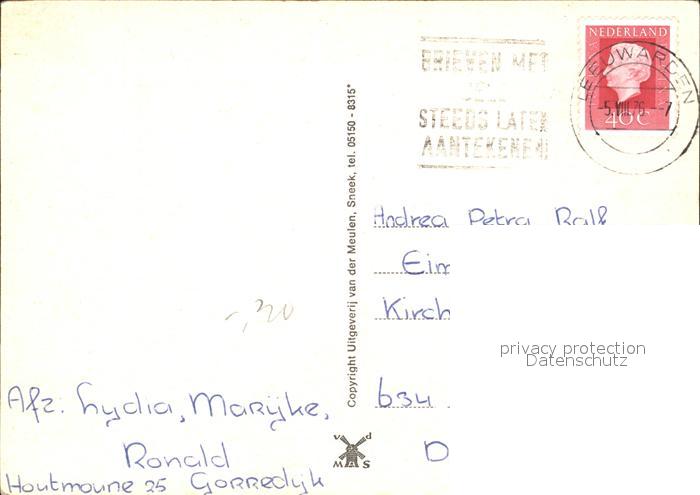 BRIEVEN MET
GELD
STEEDS LATEN
AANTEKENEN
NEDERLAND
40c
LEEUWARDEN
-5.VIII.76.-7
Andrea Petra Ralf
Eim
Kirch
privacy protection
Datenschutz
634
D
Copyright Uitgeverij van der Meulen, Sneek, tel. 05150 - 8315*
-,30
Afz. Lydia, Marijke,
Ronald
Houtmoune 25 Gorredijk
v d
M S